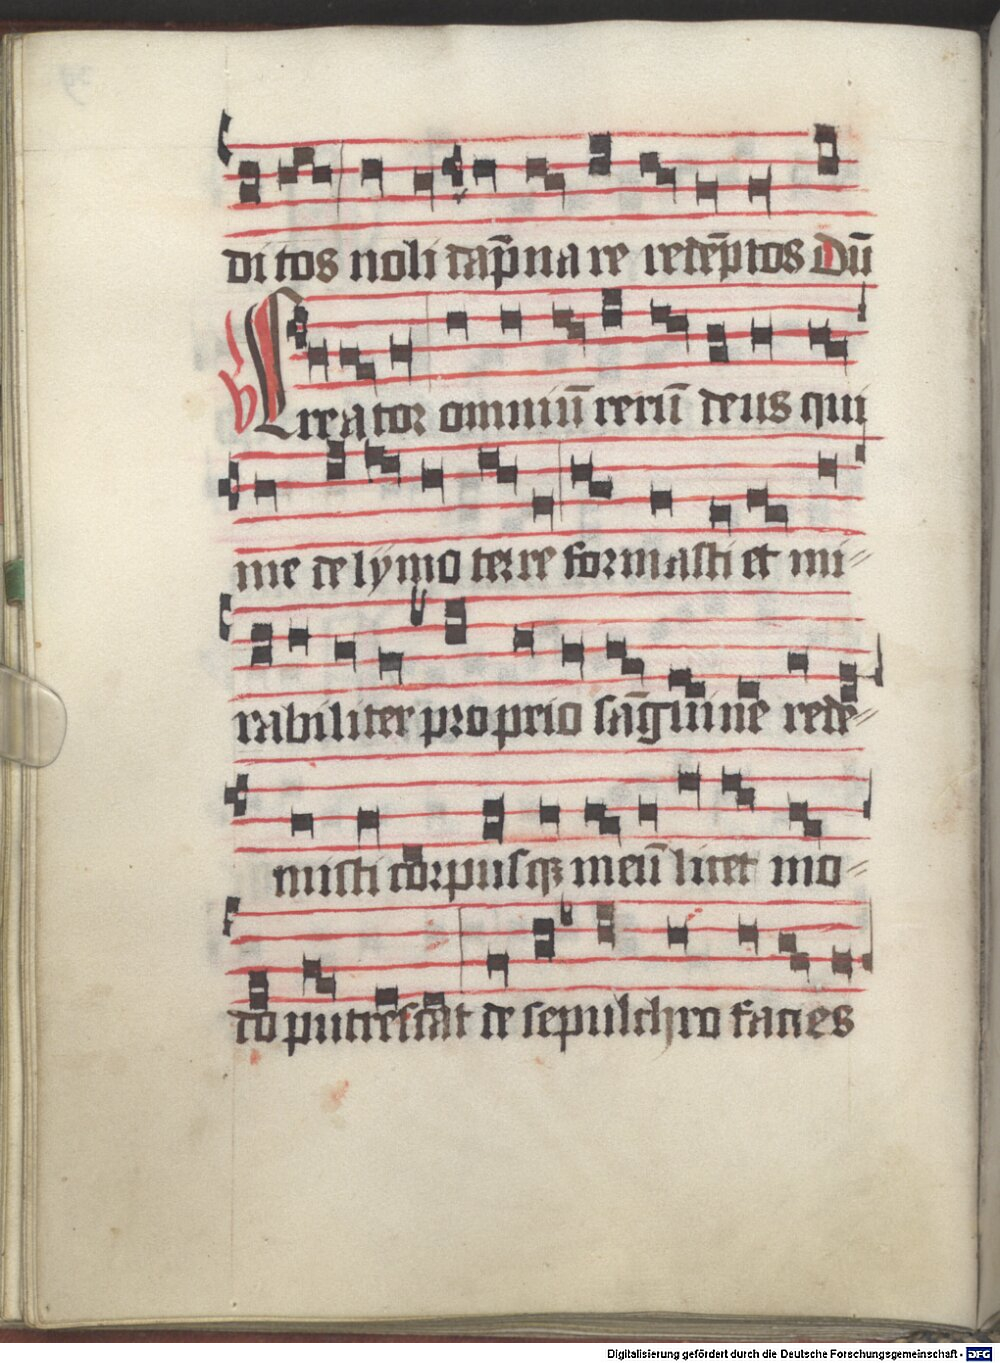 di tos noli dāp̄na re redēptos Dū
Creator omniū rerū deus qui
me de lymo terre formasti et mi-
rabiliter proprio sāguine rede-
misti corpusqꝫ meū licet mo-
do putrescat de sepulchro facies
Digitalisierung gefördert durch die Deutsche Forschungsgemeinschaft - DFG